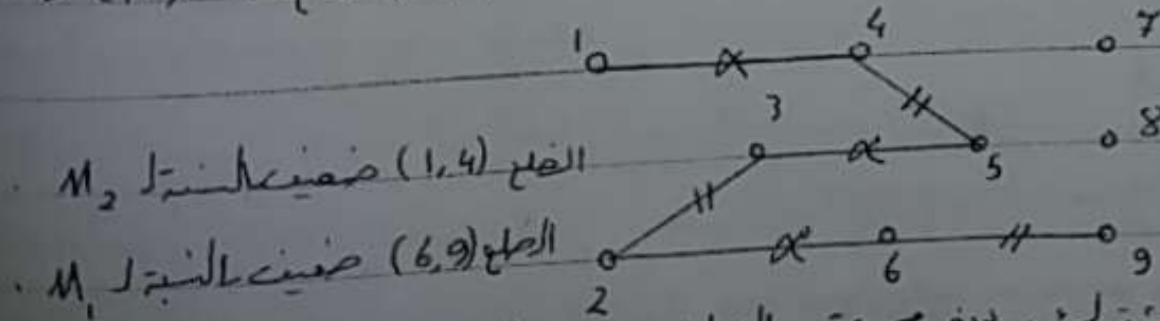 1 4 7
3
الضلع (1,4) ضعيف بالنسبة لـ M₂ . 8
5
الضلع (6,9) ضعيف بالنسبة لـ M₁ .
2 6 9